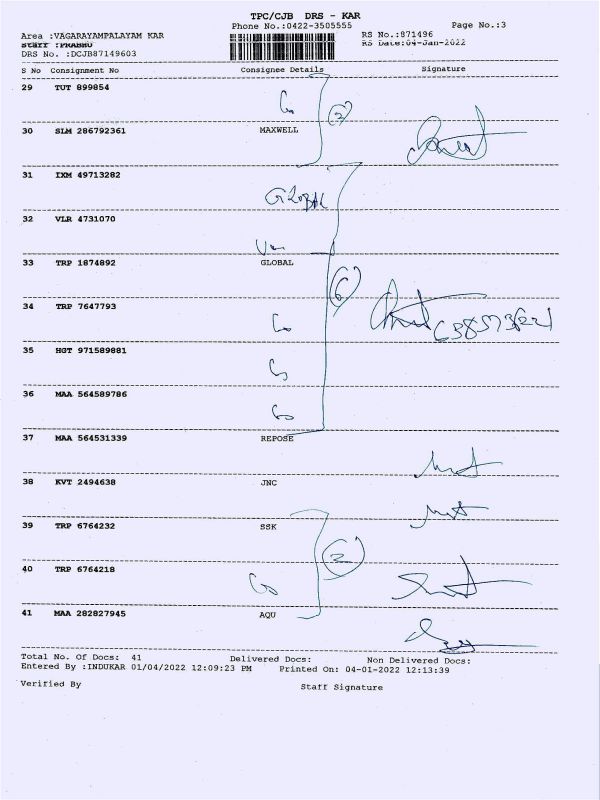 TPC/CJB DRS - KAR
Phone No.:0422-3505555 Page No.:3
Area :VAGARAYAMPALAYAM KAR RS No.:871496
Staff :PRABHU RS Date:04-Jan-2022
DRS No. :DCJB87149603
S No Consignment No Consignee Details Signature
29 TUT 899854
2
30 SLM 286792361 MAXWELL
31 IXM 49713282
GLOBAL
32 VLR 4731070
33 TRP 1874892 GLOBAL
6
34 TRP 7647793
35 HGT 971589881
36 MAA 564589786
37 MAA 564531339 REPOSE
38 KVT 2494638 JNC
39 TRP 6764232 SSK
2
40 TRP 6764218
41 MAA 282827945 AQU
Total No. Of Docs: 41 Delivered Docs: Non Delivered Docs:
Entered By :INDUKAR 01/04/2022 12:09:23 PM Printed On: 04-01-2022 12:13:39
Verified By Staff Signature